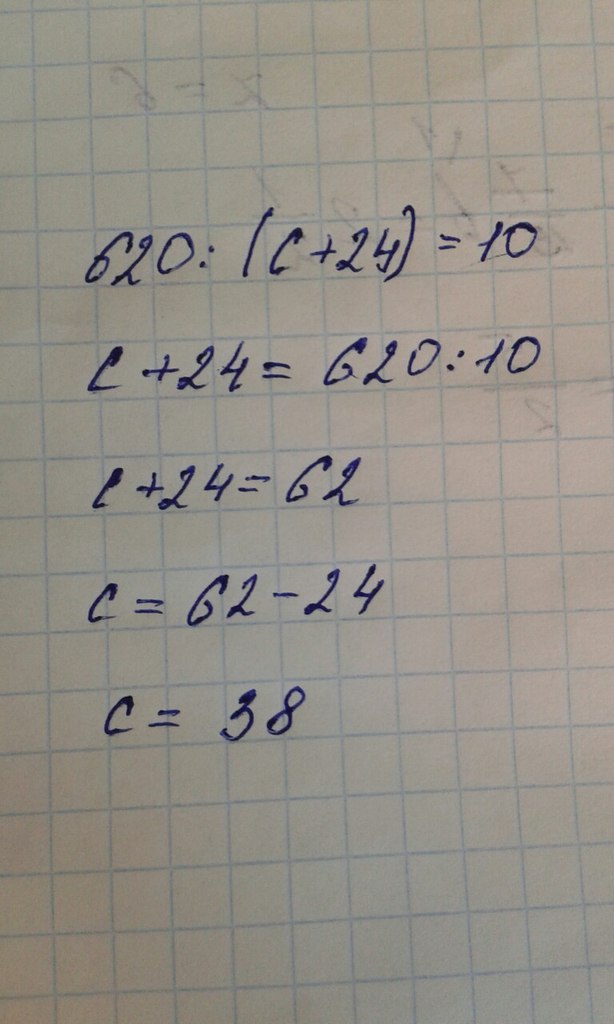 620 : (c + 24) = 10
c + 24 = 620 : 10
c + 24 = 62
c = 62 - 24
c = 38